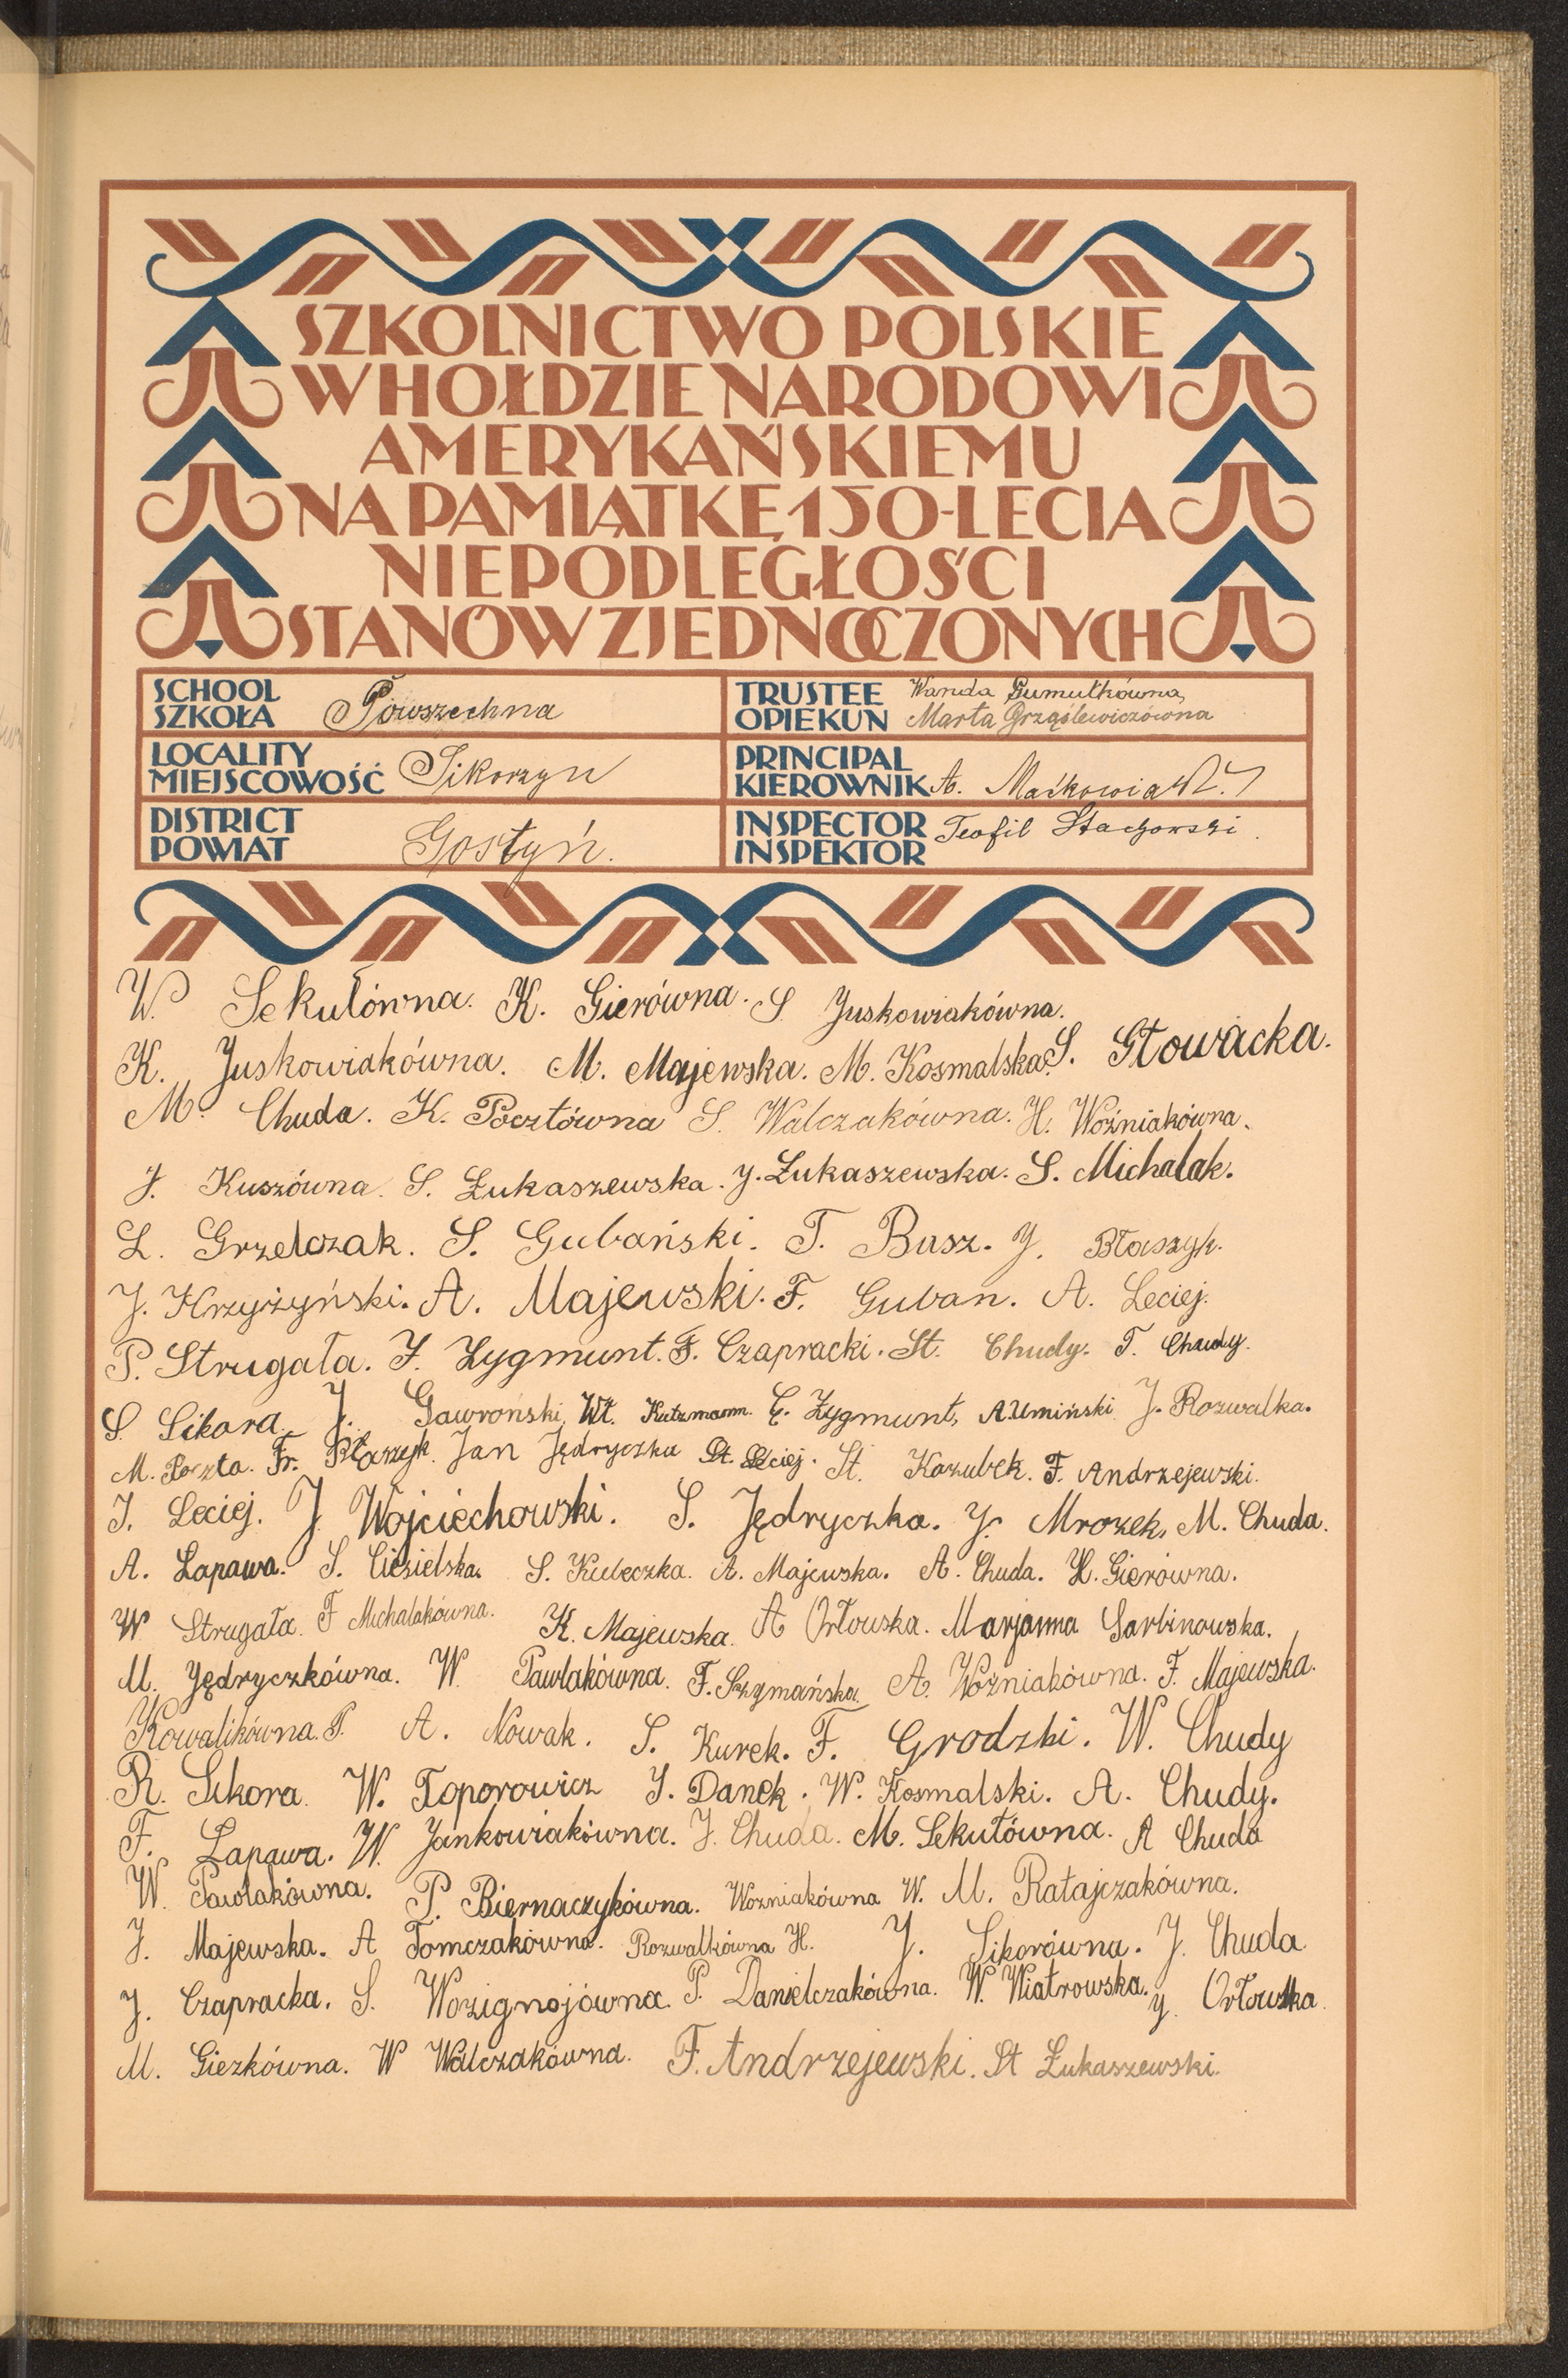 SZKOLNICTWO POLSKIE
W HOŁDZIE NARODOWI
AMERYKAŃSKIEMU
NA PAMIĄTKĘ 150-LECIA
NIEPODLEGŁOŚCI
STANÓW ZJEDNOCZONYCH
SCHOOL
SZKOŁA Powszechna
LOCALITY
MIEJSCOWOŚĆ Sikorzyn
DISTRICT
POWIAT Gostyń.
TRUSTEE Wanda
OPIEKUN Marta Grząślewiczówna
PRINCIPAL
KIEROWNIK A. Maćkowiak
INSPECTOR Teofil Stachowski.
INSPEKTOR
W. Sekułówna. K. Gierówna. S Juskowiakówna.
K. Juskowiakówna. M. Majewska. M. Kosmalska. S. Głowacka.
M. Chuda. K. Pocztówna S. Walczakówna. H. Woźniakówna.
J. Kuszówna. S. Łukaszewska. J. Łukaszewska. S. Michalak.
L. Grzelczak. S. Gubański. T. Busz. J. Błaszyk.
J. Krzyżyński. A. Majewski. F. Guban. A. Leciej.
P. Strugała. J. Zygmunt. F. Czapracki. St. Chudy. T. Chudy.
S. Sikora J. Gawroński, Wł. Kutzmann. C. Zygmunt, A. Umiński J. Rozwalka.
M. Poczta. Fr. Błaszyk. Jan Jędryczka St. Leciej. St. Kozubek. F. Andrzejewski.
J. Leciej. J. Wojciechowski. S. Jędryczka. J. Mrozek, M. Chuda.
A. Łapawa. S. Ciesielska. S. Kuleczka. A. Majewska. A. Chuda. H. Gierówna.
W Strugała. F Michalakówna. K. Majewska. A Orłowska. Marjanna Sarbinowska.
M. Jędryczkówna. W. Pawlakówna. F. Szymańska. A. Woźniakówna. F. Majewska.
Kowalikówna. P. A. Nowak. S. Kurek. F. Grodzki. W. Chudy
R. Sikora. W. Toporowicz J. Danek. W. Kosmalski. A. Chudy.
F. Łapawa. W. Jankowiakówna. J. Chuda. M. Sekułówna. A Chuda
W. Pawlakówna. P. Biernaczykówna. Wozniakówna W. M. Ratajczakówna.
J. Majewska. A Tomczakówna. Rozwalkówna H. J. Sikorówna. J. Chuda
J. Czapracka. S. Wozignojówna. P. Danielczakówna. W. Wiatrowska. J. Orłowska.
M. Giezkówna. W Walczakówna. F. Andrzejewski. St Łukaszewski.